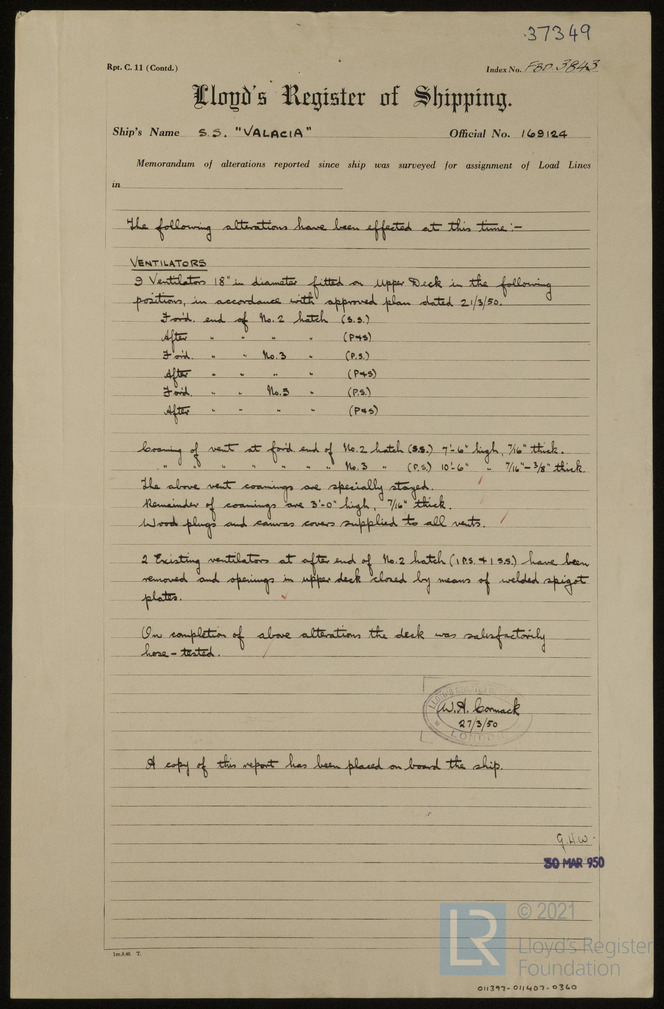 37349
Rpt. C. 11 (Contd.)
Index No. FBD 3843
Lloyd's Register of Shipping.
Ship's Name S.S. "VALACIA" Official No. 169124
Memorandum of alterations reported since ship was surveyed for assignment of Load Lines
in
The following alterations have been effected at this time:-
VENTILATORS
9 Ventilators 18" in diameter fitted on Upper Deck in the following
positions, in accordance with approved plan dated 21/3/50.
For'd. end of No.2 hatch (S.S.)
After " " " " (P&S)
For'd. " " No.3 " (P.S.)
After " " " " (P&S)
For'd. " " No.5 " (P.S.)
After " " " " (P&S)
Coaming of vent at for'd end of No.2 hatch (S.S.) 7'-6" high, 7/16" thick.
" " " " " " " No.3 " (P.S.) 10'-6" " 7/16"-3/8" thick.
The above vent coamings are specially stayed.
Remainder of coamings are 3'-0" high, 7/16" thick.
Wood plugs and canvas covers supplied to all vents.
2 Existing ventilators at after end of No.2 hatch (1 P.S. & 1 S.S.) have been
removed and openings in upper deck closed by means of welded spigot
plates.
On completion of above alterations the deck was satisfactorily
hose-tested.
W.A. Cormack
27/3/50
LONDON
A copy of this report has been placed on board the ship.
G.H.W.
30 MAR 950
LR
© 2021
Lloyd's Register
Foundation
011397-011407-0360